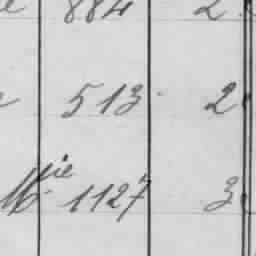 884 2
513 2
Mie 1127 3